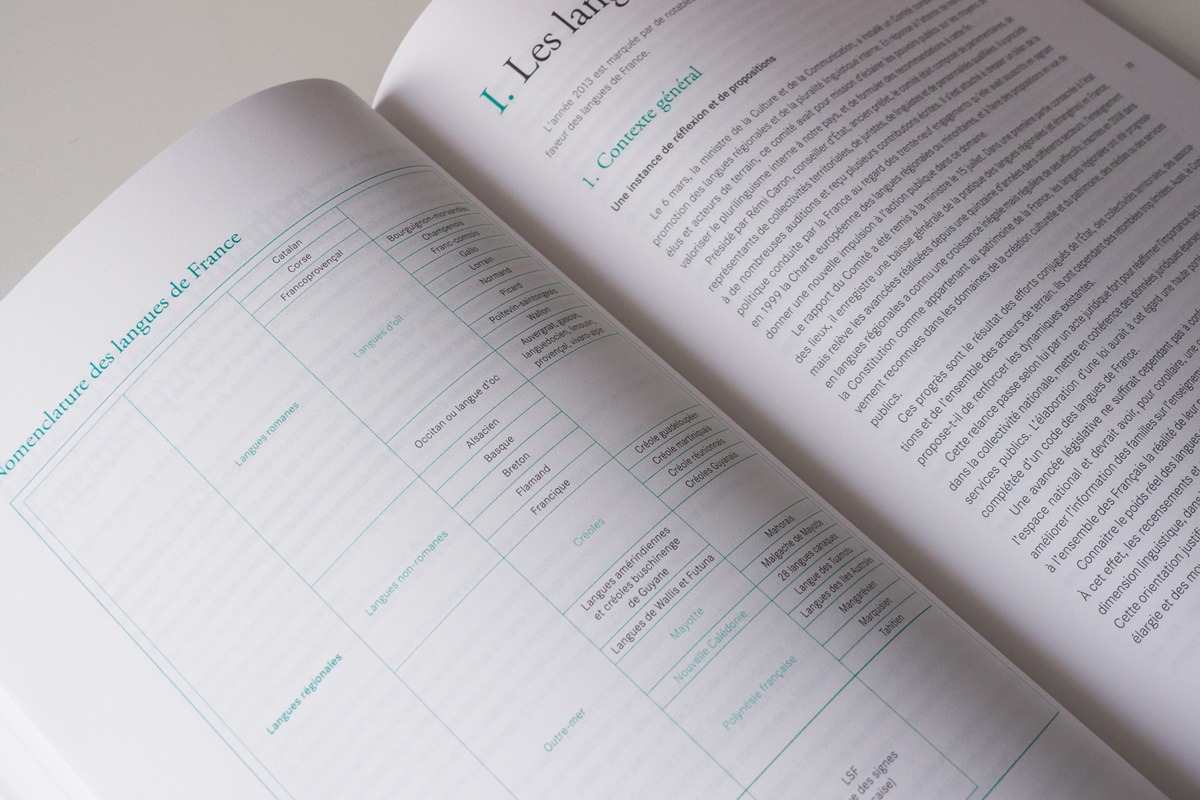 Nomenclature des langues de France
Langues régionales
Langues romanes
Catalan
Corse
Francoprovençal
Langues d'oïl
Bourguignon-morvandiau
Champenois
Franc-comtois
Gallo
Lorrain
Normand
Picard
Poitevin-saintongeais
Wallon
Occitan ou langue d'oc
Auvergnat, gascon,
languedocien, limousin,
provençal, vivaro-alpin
Langues non-romanes
Alsacien
Basque
Breton
Flamand
Francique
Outre-mer
Créoles
Créole guadeloupéen
Créole martiniquais
Créole réunionnais
Créoles Guyanais
Langues amérindiennes
et créoles buschinenge
de Guyane
Langues de Wallis et Futuna
Mayotte
Mahorais
Malgache de Mayotte
Nouvelle Calédonie
28 langues canaques
Polynésie française
Langue des Tuamotu
Langues des Iles Australes
Mangarévien
Marquisien
Tahitien
LSF
des signes
I. Les lang
L'année 2013 est marquée par de notables
faveur des langues de France.
1. Contexte général
Une instance de réflexion et de propositions
Le 6 mars, la ministre de la Culture et de la Communication, a installé un Comité
promotion des langues régionales et de la pluralité linguistique interne. En réponse à
élus et acteurs de terrain, ce comité avait pour mission d'éclairer les pouvoirs publics sur les moyens de
valoriser le plurilinguisme interne à notre pays, et de formuler des recommandations à cette fin.
Présidé par Rémi Caron, conseiller d'État, ancien préfet, le comité était composé de parlementaires, de
représentants de collectivités territoriales, de juristes, de linguistes et de personnalités qualifiées. Il a procédé
à de nombreuses auditions et reçu plusieurs contributions écrites. Il s'est attaché à dresser un bilan de la
politique conduite par la France au regard des trente-neuf engagements qu'elle avait souscrits en signant
en 1999 la Charte européenne des langues régionales ou minoritaires, et à faire des propositions en vue de
donner une nouvelle impulsion à l'action publique dans ce domaine.
Le rapport du Comité a été remis à la ministre le 15 juillet. Dans une première partie consacrée à l'état
des lieux, il enregistre une baisse générale de la pratique des langues régionales et étrangères en France,
mais relève les avancées réalisées depuis une quinzaine d'années dans différents secteurs : l'enseignement
en langues régionales a connu une croissance inégale mais régulière de ses effectifs, inscrites en 2008 dans
la Constitution comme appartenant au patrimoine de la France, les langues régionales ont été progressi-
vement reconnues dans les domaines de la création culturelle et du patrimoine, des médias ou des services
publics.
Ces progrès sont le résultat des efforts conjugués de l'État, des collectivités territoriales, des associa-
tions et de l'ensemble des acteurs de terrain. Ils ont cependant des
propose-t-il de renforcer les dynamiques existantes.
Cette relance passe selon lui par un acte juridique fort pour réaffirmer l'importance
dans la collectivité nationale, mettre en cohérence des données juridiques
services publics. L'élaboration d'une loi aurait à cet égard une haute
complétée d'un code des langues de France.
Une avancée législative ne suffirait cependant pas à
l'espace national et devrait avoir, pour corollaire, une
améliorer l'information des familles sur l'enseignement
à l'ensemble des Français la réalité de
Connaître le poids réel des langues
À cet effet, les recensements et
dimension linguistique, dans
Cette orientation
élargie et des